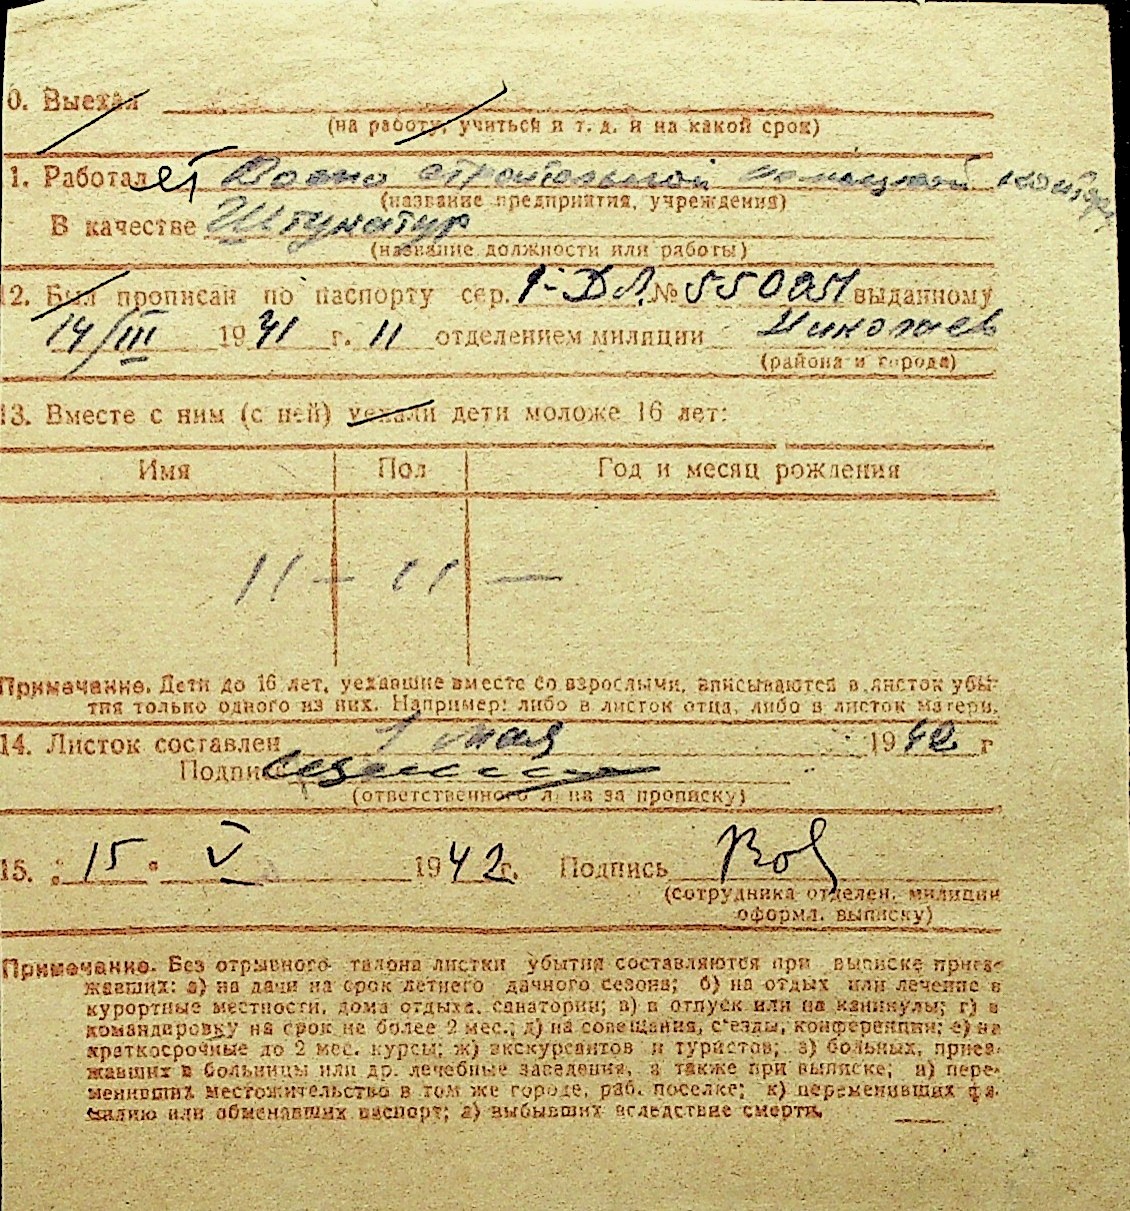 0. Выехал
(на работу, учиться и т. д. и на какой срок)
1. Работает Военно строительной немецкой
(название предприятия, учреждения)
В качестве Штукатур
(название должности или работы)
12. Был прописан по паспорту сер. 1-ДЛ № 550251 выданному
14/III 1941 г. 11 отделением милиции Николаев
(района и города)
13. Вместе с ним (с ней) уехали дети моложе 16 лет:
Имя Пол Год и месяц рождения
11 – 11 –
Примечание. Дети до 16 лет, уехавшие вместе со взрослыми, вписываются в листок убы-
тия только одного из них. Например: либо в листок отца, либо в листок матери.
14. Листок составлен 1 мая 1942 г
Подпись
(ответственного лица за прописку)
15. „15" V 1942 г. Подпись
(сотрудника отделен. милиции
оформл. выписку)
Примечание. Без отрывного талона листки убытия составляются при выписке приез-
жавших: а) на дачи на срок летнего дачного сезона; б) на отдых или лечение в
курортные местности, дома отдыха, санатории; в) в отпуск или на каникулы; г) в
командировку на срок не более 2 мес.; д) на совещания, с'езды, конференции; е) на
краткосрочные до 2 мес. курсы; ж) экскурсантов и туристов; з) больных, приез-
жавших в больницы или др. лечебные заседения, а также при выписке; и) пере-
менивших местожительство в том же городе, раб. поселке; к) переменивших фа-
милию или обменявших паспорт; л) выбывших вследствие смерти.